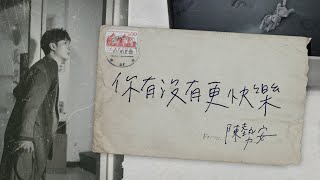 你有沒有更快樂
From:
陳勢安